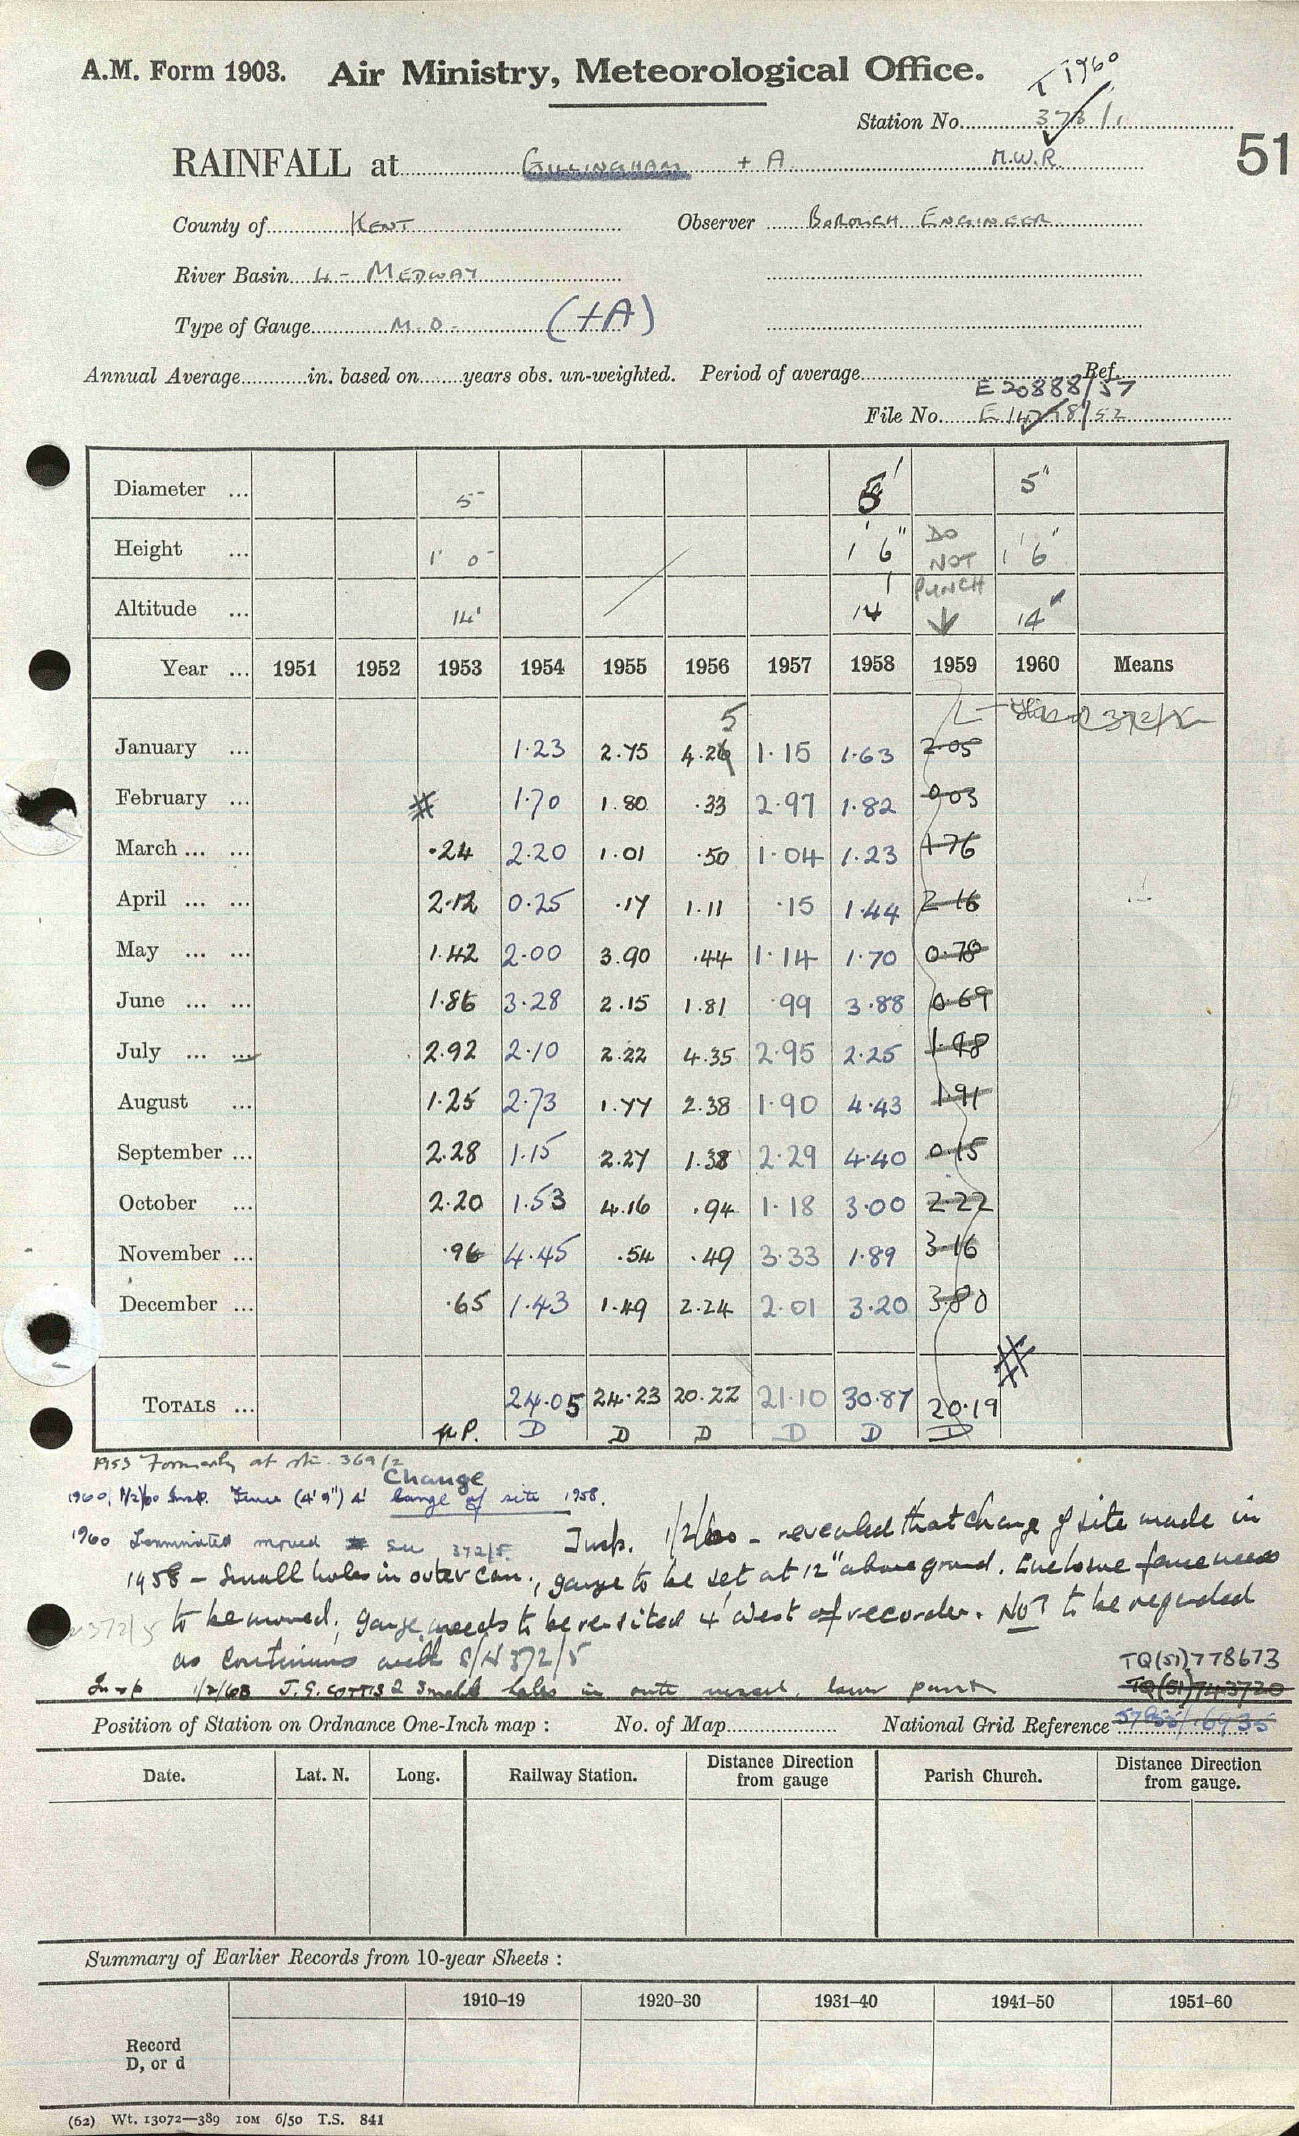 A.M. Form 1903. Air Ministry, Meteorological Office.
T 1960
Station No. 373/1
51
RAINFALL at GILLINGHAM + A. M.W.R.
County of KENT Observer BOROUGH ENGINEER
River Basin 4 - MEDWAY
Type of Gauge M.O. (+A)
Annual Average............in. based on........years obs. un-weighted. Period of average Ref.
E 20888/57
File No.
Diameter ... 5" 5" 5"
Height ... 1' 0" 1' 6" DO NOT PUNCH 1' 6"
Altitude ... 14' 14' 14"
Year ... 1951 1952 1953 1954 1955 1956 1957 1958 1959 1960 Means
5
January ... 1.23 2.75 4.26 1.15 1.63 2.05
February ... # 1.70 1.80 .33 2.97 1.82 0.03
March ... ... .24 2.20 1.01 .50 1.04 1.23 1.76
April ... ... 2.12 0.25 .17 1.11 .15 1.44 2.16
May ... ... 1.42 2.00 3.90 .44 1.14 1.70 0.78
June ... ... 1.86 3.28 2.15 1.81 .99 3.88 0.69
July ... ... 2.92 2.10 2.22 4.35 2.95 2.25 1.48
August ... 1.25 2.73 1.77 2.38 1.90 4.43 1.91
September ... 2.28 1.15 2.27 1.38 2.29 4.40 0.15
October ... 2.20 1.53 4.16 .94 1.18 3.00 2.22
November ... .96 4.45 .54 .49 3.33 1.89 3.16
December ... .65 1.43 1.49 2.24 2.01 3.20 3.80
#
TOTALS ... 24.05 24.23 20.22 21.10 30.87 20.19
D D D D D D
1953 Formerly at stn. 369/2
Change
1960, 1/2/60 Insp. Fence (4' 9") 4' change of site 1958.
1960 Terminated moved see 372/5. Insp. 1/2/60 - revealed that change of site made in
1958 - Small holes in outer can., gauge to be set at 12" above ground. Enclosure fence needs
to be moved; gauge needs to be re-sited 4' West of recorder. NOT to be regarded
372/5
as continuous with S/N 372/5
TQ(51)778673
Insp 1/2/60 J.G. COTTIS 2 small holes in outer vessel, lower part
TQ(51)743720
Position of Station on Ordnance One-Inch map : No. of Map National Grid Reference
Date. Lat. N. Long. Railway Station. Distance from gauge Direction Parish Church. Distance from gauge. Direction
Summary of Earlier Records from 10-year Sheets :
1910–19 1920–30 1931–40 1941–50 1951–60
Record
D, or d
(62) Wt. 13072—389 10M 6/50 T.S. 841